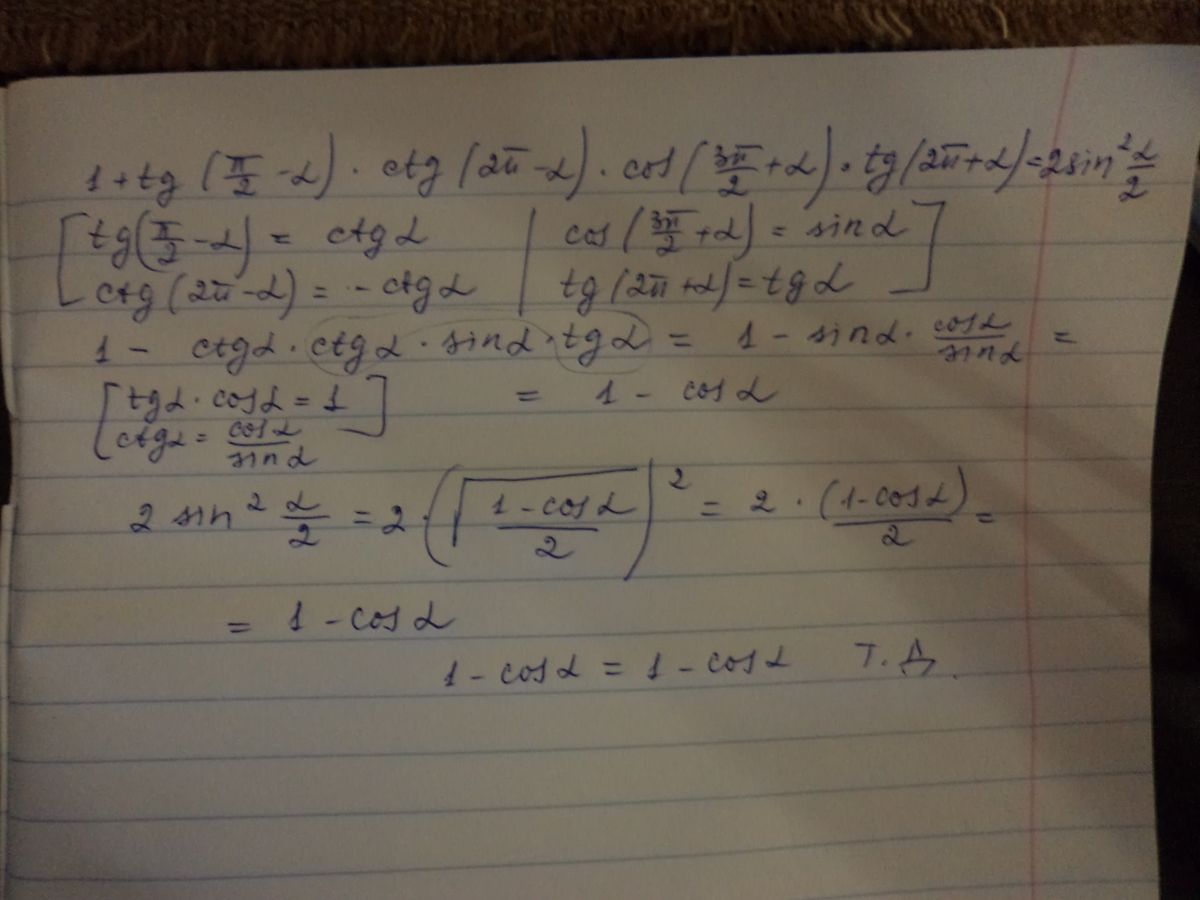 1 + tg (π/2 - α) · ctg (2π - α) · cos (3π/2 + α) · tg (2π + α) = 2 sin² α/2
[ tg (π/2 - α) = ctg α | cos (3π/2 + α) = sin α ]
ctg (2π - α) = - ctg α | tg (2π + α) = tg α
1 - ctg α · ctg α · sin α · tg α = 1 - sin α · cos α/sin α =
[ tg α · cos α = 1 ] = 1 - cos α
ctg α = cos α/sin α
2 sin² α/2 = 2 · (√(1 - cos α)/2)² = 2 · (1 - cos α)/2 =
= 1 - cos α
1 - cos α = 1 - cos α т. д.